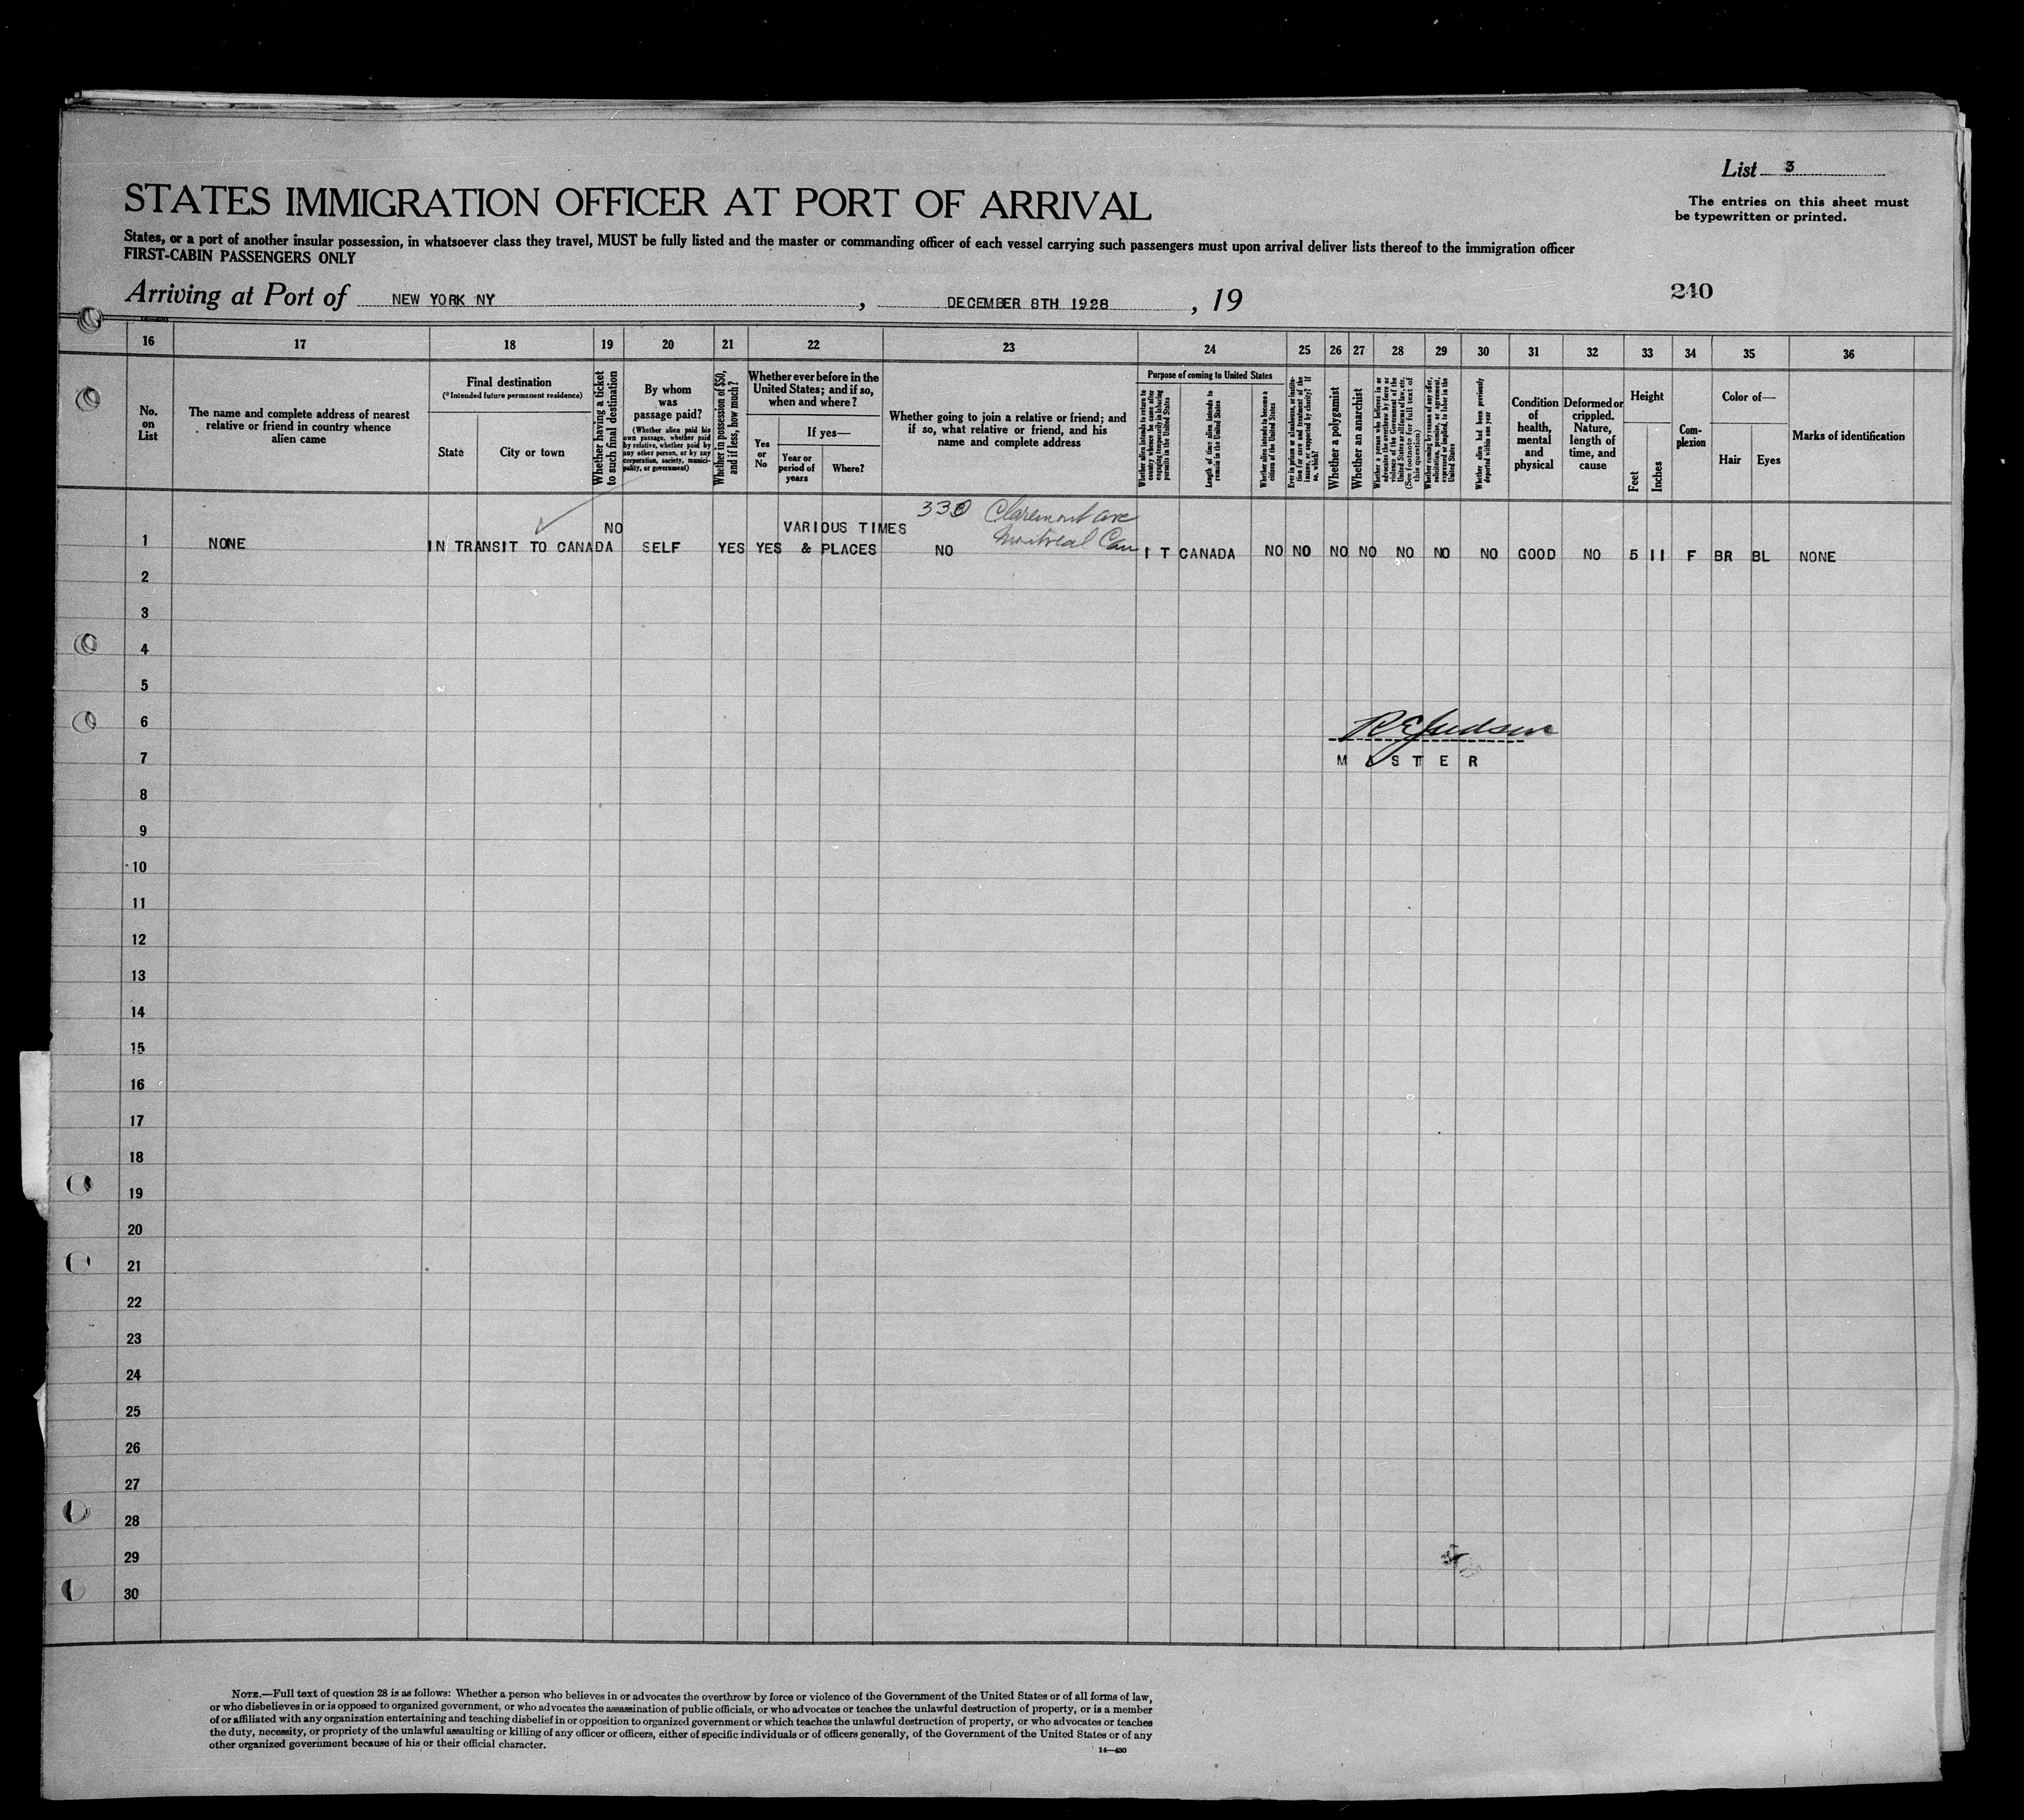 List 3
The entries on this sheet must
be typewritten or printed.
STATES IMMIGRATION OFFICER AT PORT OF ARRIVAL
States, or a port of another insular possession, in whatsoever class they travel, MUST be fully listed and the master or commanding officer of each vessel carrying such passengers must upon arrival deliver lists thereof to the immigration officer
FIRST-CABIN PASSENGERS ONLY
Arriving at Port of NEW YORK NY, DECEMBER 8TH 1928, 19
240
16 17 18 19 20 21 22 23 24 25 26 27 28 29 30 31 32 33 34 35 36
No.
on
List
The name and complete address of nearest
relative or friend in country whence
alien came
Final destination
(*Intended future permanent residence)
State
City or town
Whether having a ticket
to such final destination
By whom
was
passage paid?
(Whether alien paid his
own passage, whether paid
by relative, whether paid by
any other person, or by any
corporation, society, munici-
pality, or government)
Whether in possession of $50,
and if less, how much?
Whether ever before in the
United States; and if so,
when and where?
Yes
or
No
If yes—
Year or
period of
years
Where?
Whether going to join a relative or friend; and
if so, what relative or friend, and his
name and complete address
Purpose of coming to United States
Whether alien intends to return to
country whence he came after
engaging temporarily in laboring
pursuits in the United States
Length of time alien intends to
remain in the United States
Whether alien intends to become a
citizen of the United States
Ever in prison or almshouse, or institu-
tion for care and treatment of the
insane, or supported by charity? If
so, which?
Whether a polygamist
Whether an anarchist
Whether a person who believes in or
advocates the overthrow by force or
violence of the Government of the
United States or all forms of law, etc.
(See footnote for full text of
this question)
Whether coming by reason of any offer,
solicitation, promise, or agreement,
expressed or implied, to labor in the
United States
Whether alien had been previously
deported within one year
Condition
of
health,
mental
and
physical
Deformed or
crippled.
Nature,
length of
time, and
cause
Height
Feet
Inches
Com-
plexion
Color of—
Hair
Eyes
Marks of identification
330 Claremont ave
Montreal Can
NO VARIOUS TIMES
1 NONE IN TRANSIT TO CANADA SELF YES YES & PLACES NO I T CANADA NO NO NO NO NO NO NO GOOD NO 5 11 F BR BL NONE
2
3
4
5
6
R E Judson
7
MASTER
8
9
10
11
12
13
14
15
16
17
18
19
20
21
22
23
24
25
26
27
28
29
30
NOTE.—Full text of question 28 is as follows: Whether a person who believes in or advocates the overthrow by force or violence of the Government of the United States or of all forms of law,
or who disbelieves in or is opposed to organized government, or who advocates the assassination of public officials, or who advocates or teaches the unlawful destruction of property, or is a member
of or affiliated with any organization entertaining and teaching disbelief in or opposition to organized government or which teaches the unlawful destruction of property, or who advocates or teaches
the duty, necessity, or propriety of the unlawful assaulting or killing of any officer or officers, either of specific individuals or of officers generally, of the Government of the United States or of any
other organized government because of his or their official character.
14—430